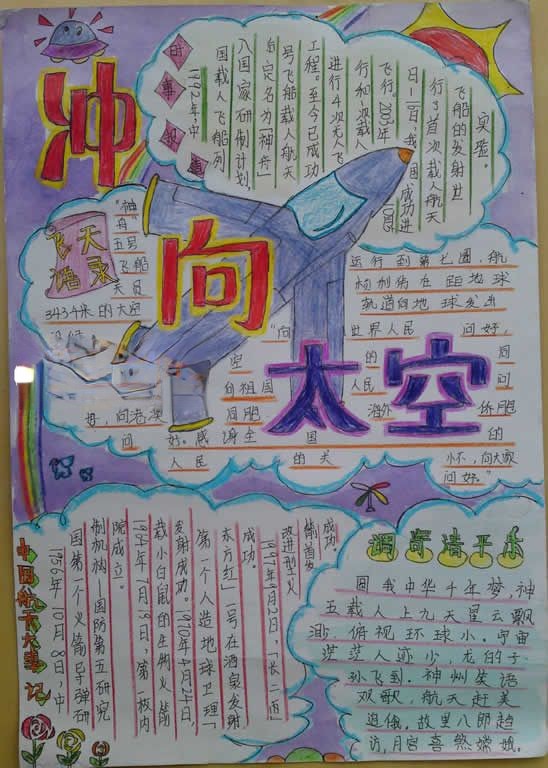 冲
向
太空
时事报道
1992年中
国载人飞船列
入国家研制计划,
后定名为"神舟"
号飞船载人航天
工程。至今已成功
进行4次无人飞
行和1次载人
飞行。2003年
10月15
日-16日,我国成功进
行了首次载人航天
飞船的发射
实验。
飞天
语录
"神
舟"
五号
飞船
天员
3434米的太空
运行到第七圈,航
杨利伟在距地球
轨道向地球发出
"向世界人民问好,
空的同
向祖国人民问
好,向港澳同胞海外侨胞
问好。感谢全国的
人民的关怀,向大家
问好。"
中国航天大事记
1956年10月8日,中
国第一个火箭导弹研
制机构—国防第五研究
院成立。
1964年7月19日,第一枚内
载小白鼠的生物火箭
发射成功。1970年4月24日,
第一个人造地球卫星「
东方红」一号在酒泉发射
成功。
1997年9月2日,「长二丙」
改进型火
箭首发
成功。
调寄清平乐
圆我中华千年梦,神
五载人上九天星云飘
渺,俯视环球小。宇宙
茫茫人迹少,龙的子
孙飞到。神州笑语
欢歌,航天赶美
追俄,故里八郎趋
访,月宫喜煞嫦娥。